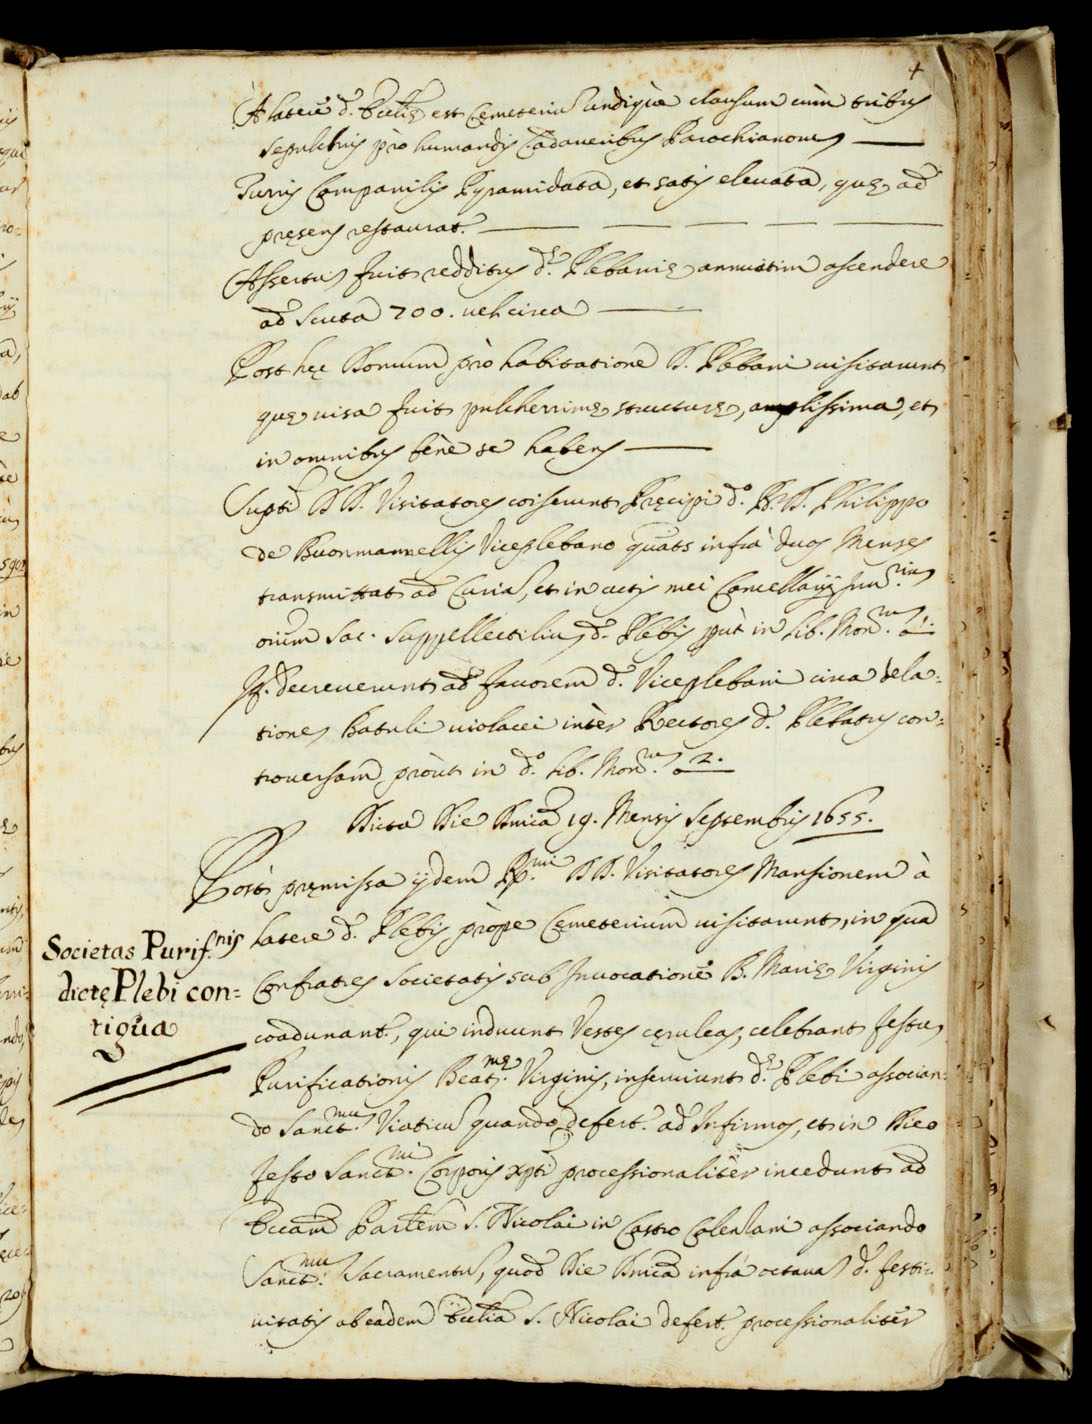 4
A latere d. Ecclię est Cęmeteriũ undiq̀ue clausum cùm tribus
sepulchris prò humandis Cadaveribus Parochianorum
Turris Campanilis Pyramidata, et satis elevata, quę ad
pręsens restaurat.
Assertũ fuit redditus d.ę Plebanię annuatim ascendere
ad scuta 700. vel circa
Post hęc Domum prò habitatione D. Plebani visitarunt
quę visa fuit pulcherrimę structurę, amplissima, et
in omnibus benè se habens
Supti DD. Visitatores coiserunt Pręcipi d.o R. D. Philippo
de Buonmannellis Viceplebano quats infrà duos Menses
transmittat ad Curiã, et in actis mei Cancellarij Inv.riũ
oium Sac. Suppellectiliũ d. Plebis put in lib. Mon.m a 1.
It. decreverunt ad favorem d. Viceplebani circa dela-
tionem Baculi violacei intèr Rectores d. Plebatus con-
troversam proùt in d.o lib. Mon.m a 2.
Dicta Die Dnica 19. Mensis Septembris 1655.
Post pręmissa ijdem R.mi DD. Visitatores Mansionem à
latere d. Plebis pròpe Cęmeterium visitarunt, in qua
Societas Purif.nis
dictę Plebi con=
tigua
Confratres Societatis sub Invocationè B. Marię Virginis
coadunant., qui induunt Vestes cęruleas, celebrant festũ
Purificationis Beat.mę Virginis, inserviunt d.ę Plebi associan-
do Sanct.mũ Viaticũ quando defert. ad Infirmos, et in Die
festo Sanct.mi Corporis Xpti processionalitèr incedunt ad
Eccam Parlem S. Nicolai in Castro Calenzani associando
Sanct.mũ Sacramentũ, quod Die Dnica infrà octavã d. festi-
vitatis ab eadem Ecclia S. Nicolai defert. processionalitèr